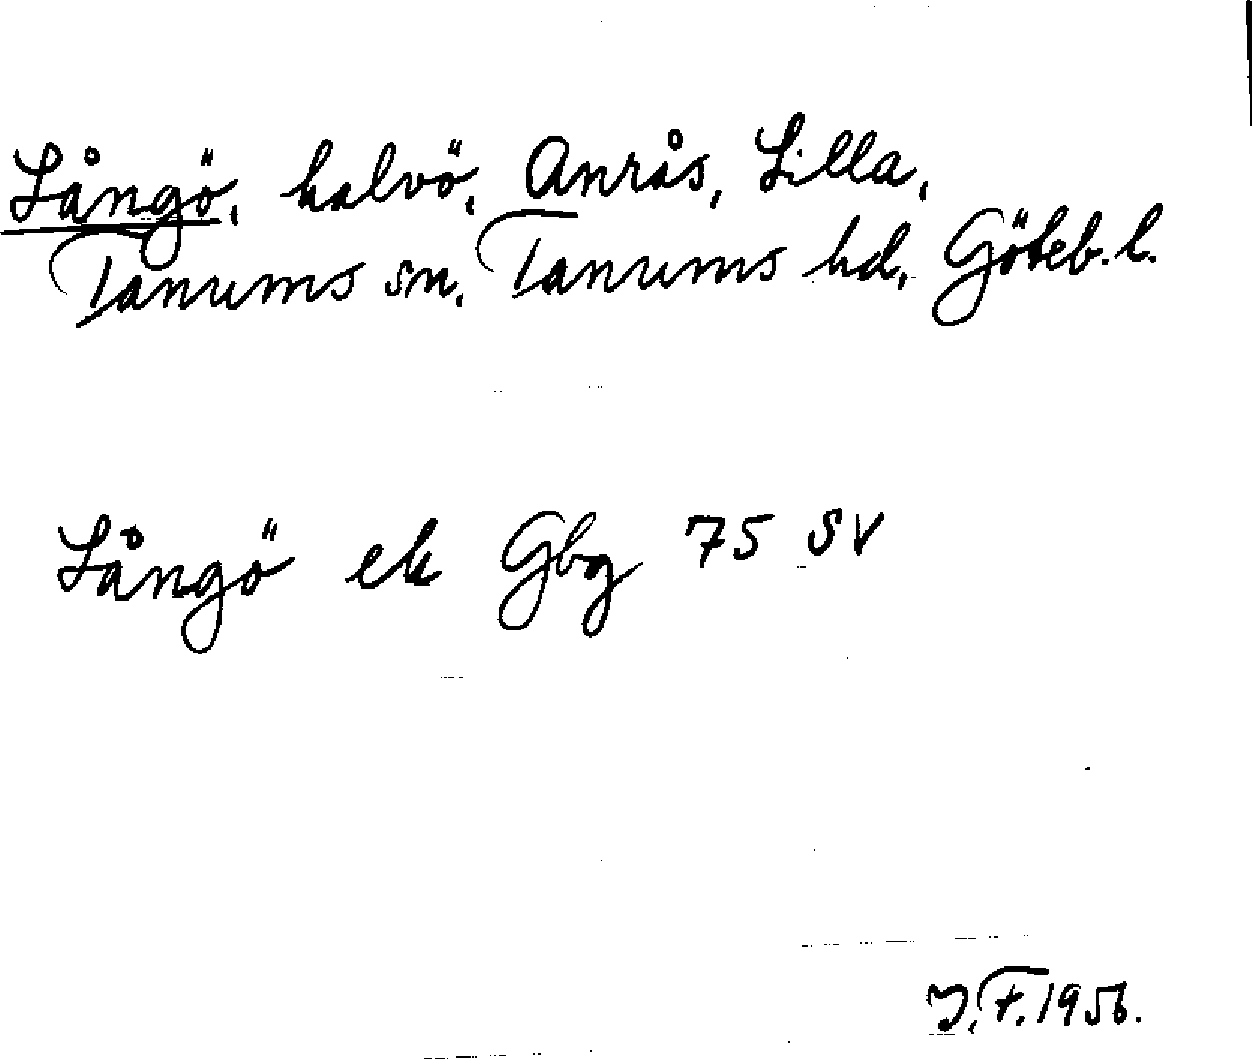 Långö, halvö, Anrås, Lilla,
Tanums sn, Tanums hd, Göteb. l.
Långö ek Gbg 75 SV
J.F. 1956.